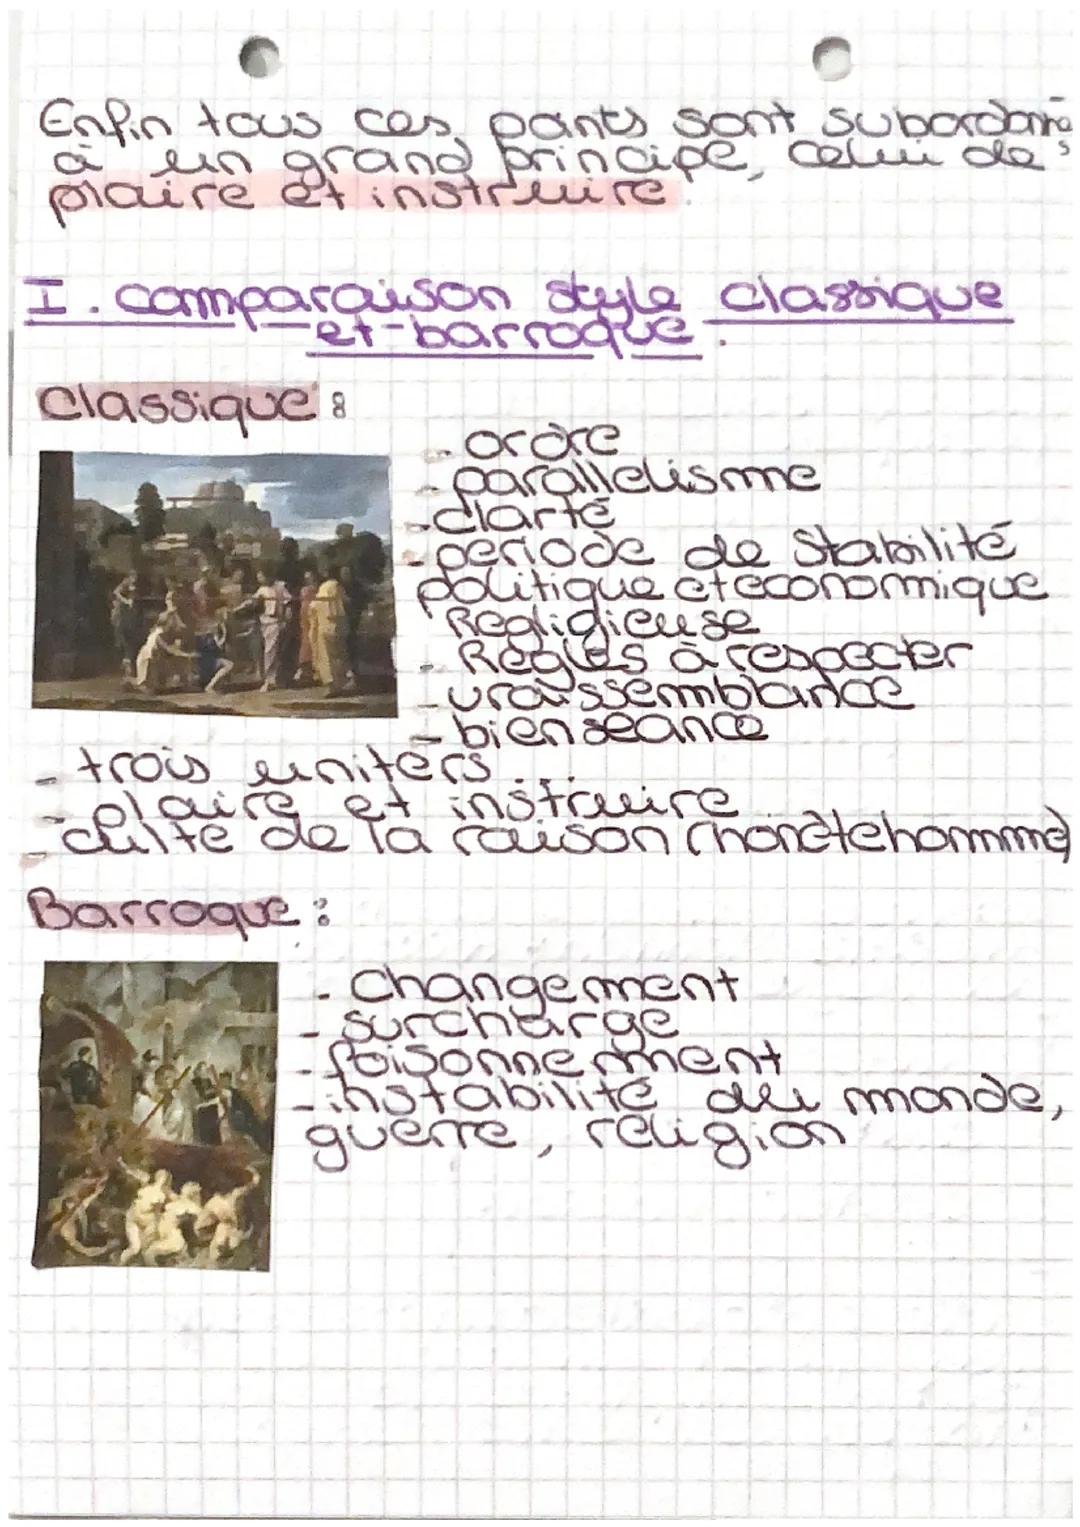 Enfin tous ces points sont subordonnés
à un grand principe, celui de
plaire et instruire.
I. comparaison style classique
et barroque.
Classique :
- ordre
- parallelisme
- clarté
- periode de stabilité
politique et economique
Regligieuse
- Regles à respecter
- vraissemblance
- bienseance
- trois uniters ...
- plaire et instruire
- culte de la raison (honête homme)
Barroque :
- changement
- surcharge
- foisonnement
- instabilité du monde,
guerre, religion